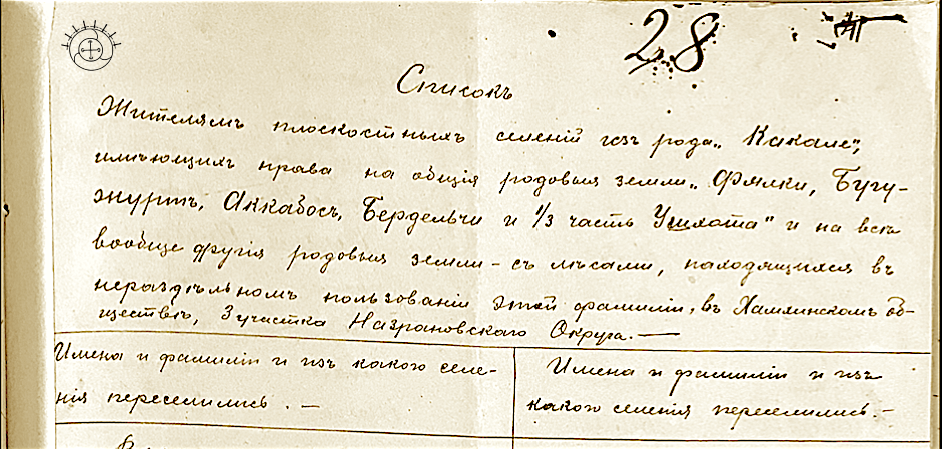 28
Списокъ
Жителямъ плоскостныхъ селеній изъ рода „Какале”,
имѣющихъ права на общія родовыя земли „Фялки, Бугу-
журтъ, Аккабосъ, Бердельчи и 1/3 часть Ушхота" и на всѣ
вообще другія родовыя земли – съ лѣсами, находящихся въ
нераздѣльномъ пользованіи этой фамиліи, въ Хамхинскомъ об-
ществѣ, 3 участка Назрановскаго Округа. —
Имена и фамиліи и изъ какого селе-
нія переселились. —
Имена и фамиліи и изъ
какого селенія переселились. —